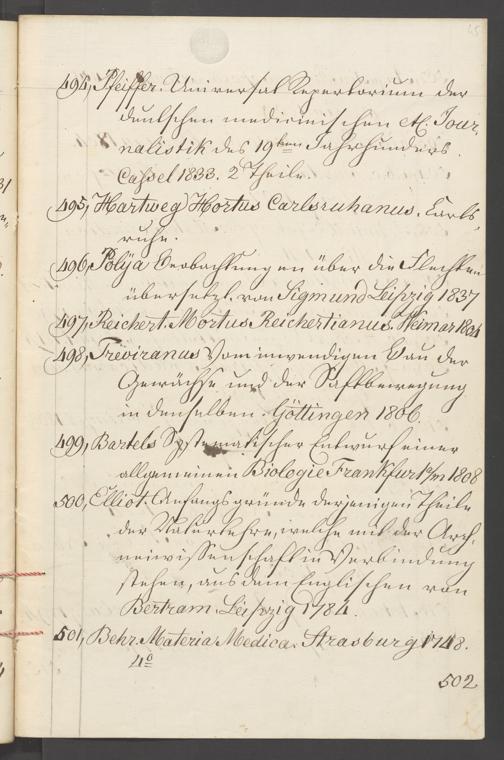 494, Pfeiffer. Universal Repertorium der
deutschen medicinischen etc. Jour-
nalistik des 19ten Jahrhunderts.
Cassel 1833. 2 Theile.
495, Hartweg Hortus Carlsruhanus. Carls-
ruhe.
496, Polÿa Beobachtungen über die Flechten
übersetzt von Sigmund Leipzig 1837
497, Reichert. Hortus Reichertianus. Weimar 1804
498, Treviranus Vom inwendigen Bau der
Gewächse und der Saftbewegung
in denselben. Göttingen 1806.
499, Bartels Systematischer Entwurf einer
allgemeinen Biologie Frankfurt a/m 1808
500, Elliot Anfangsgründe derjenigen Theile
der Naturlehre, welche mit der Arz-
neiwissenschaft in Verbindung
stehen, aus dem Englischen von
Bertram. Leipzig 1784.
501, Behr. Materia Medica. Strasburg 1748.
4o
502